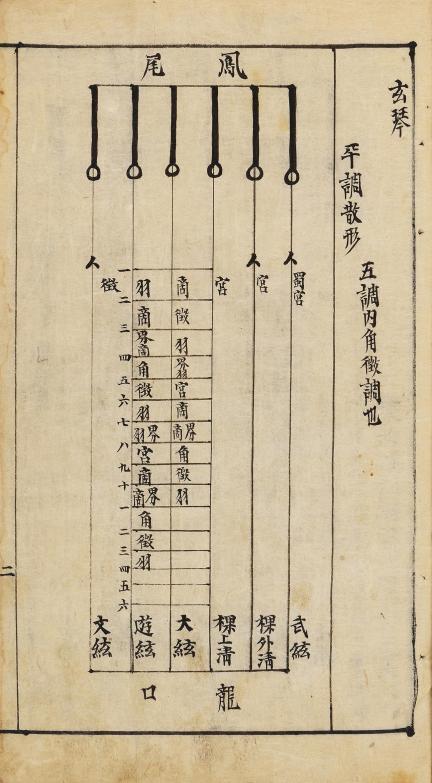 玄琴
平調散形
五調内角徵調也
鳳尾
人
蜀宮
武絃
人
宮
棵外淸
宮
棵上淸
商
徵
羽
界羽
宮
商
界商
角
徵
羽
大絃
羽
商
界商
角
徵
羽
界羽
宮
商
界商
角
徵
羽
遊絃
一
二
三
四
五
六
七
八
九
十
一
二
三
四
五
六
人
徵
文絃
龍口
二